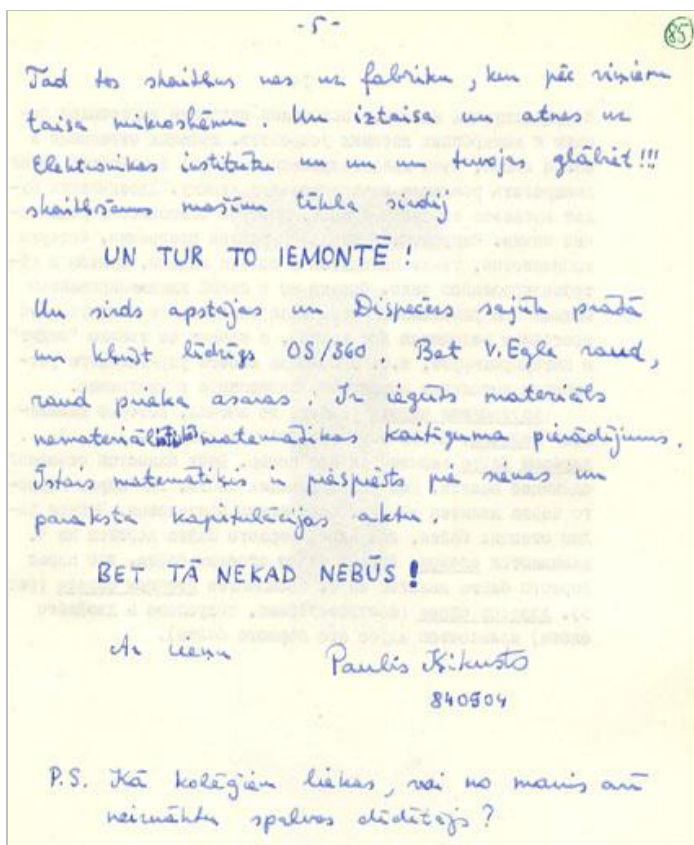 - 5 -
85
Tad tos skaitļus nes uz fabriku, kur pēc viņiem
taisa mikroshēmu. Un iztaisa un atnes uz
Elektronikas institūtu un un un tuvojas glābiet!!!
skaitļošanas mašīnu tīkla sirdij
UN TUR TO IEMONTĒ!
Un sirds apstājas un Dispečers sajūk prātā
un kļūst līdzīgs OS/360. Bet V.Egle raud,
raud prieka asaras. Ir iegūts materiāls
nemateriālistiskās matemātikas kaitīguma pierādījums.
Īstais matemātiķis ir piespiests pie sienas un
paraksta kapitulācijas aktu.
BET TĀ NEKAD NEBŪS!
Ar cieņu Paulis Ķikusts
840904
P.S. Kā kolēģiem liekas, vai no manis arī
neiznāktu spalvas dīdītājs?